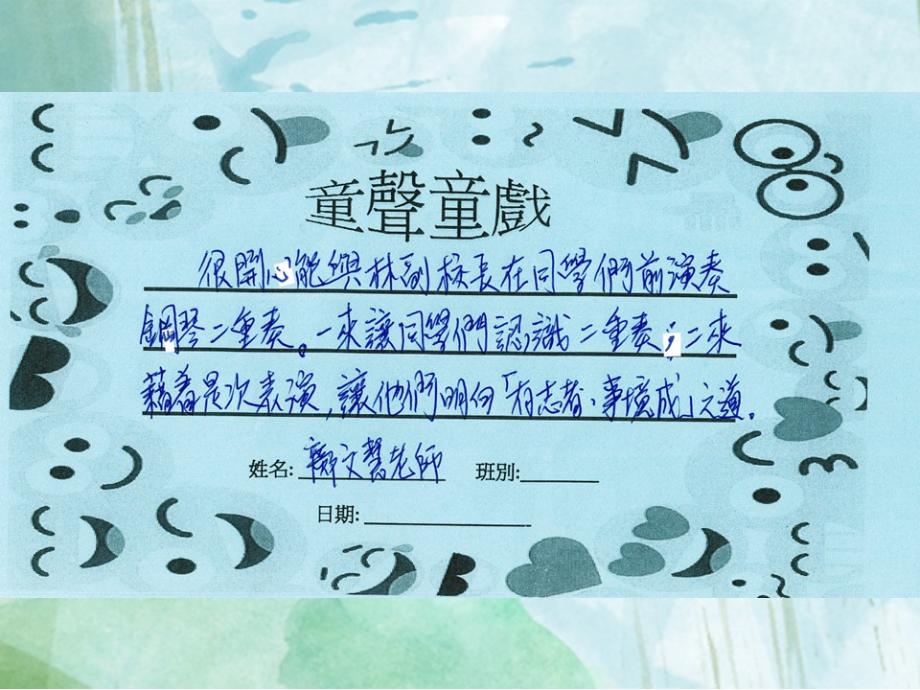 童聲童戲
很開心能與林副校長在同學們前演奏
鋼琴二重奏。一來讓同學們認識二重奏;二來
藉着是次表演,讓他們明白「有志者,事境成」之道。
姓名: 鄺文慧老師 班別:
日期: